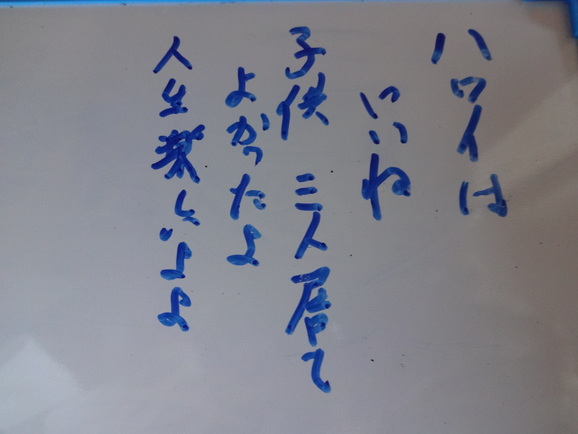 ハワイは
いいね
子供 三人居て
よかったよ
人生楽しいよ